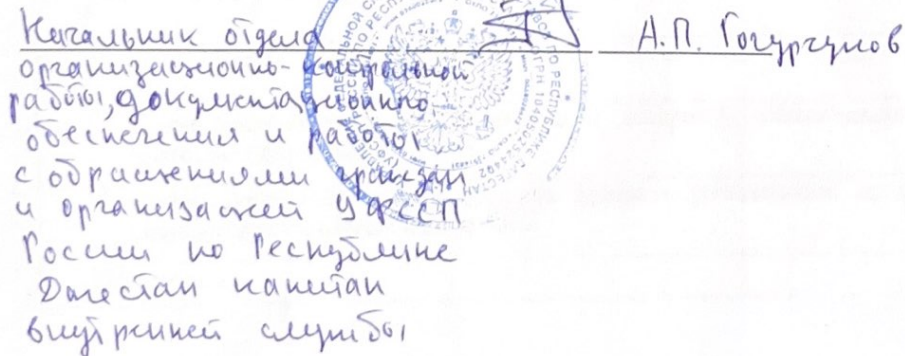 Начальник отдела А.П. Гогурчунов
организационно-контрольной
работы, документационного
обеспечения и работы
с обращениями граждан
и организаций УФССП
России по Республике
Дагестан капитан
внутренней службы